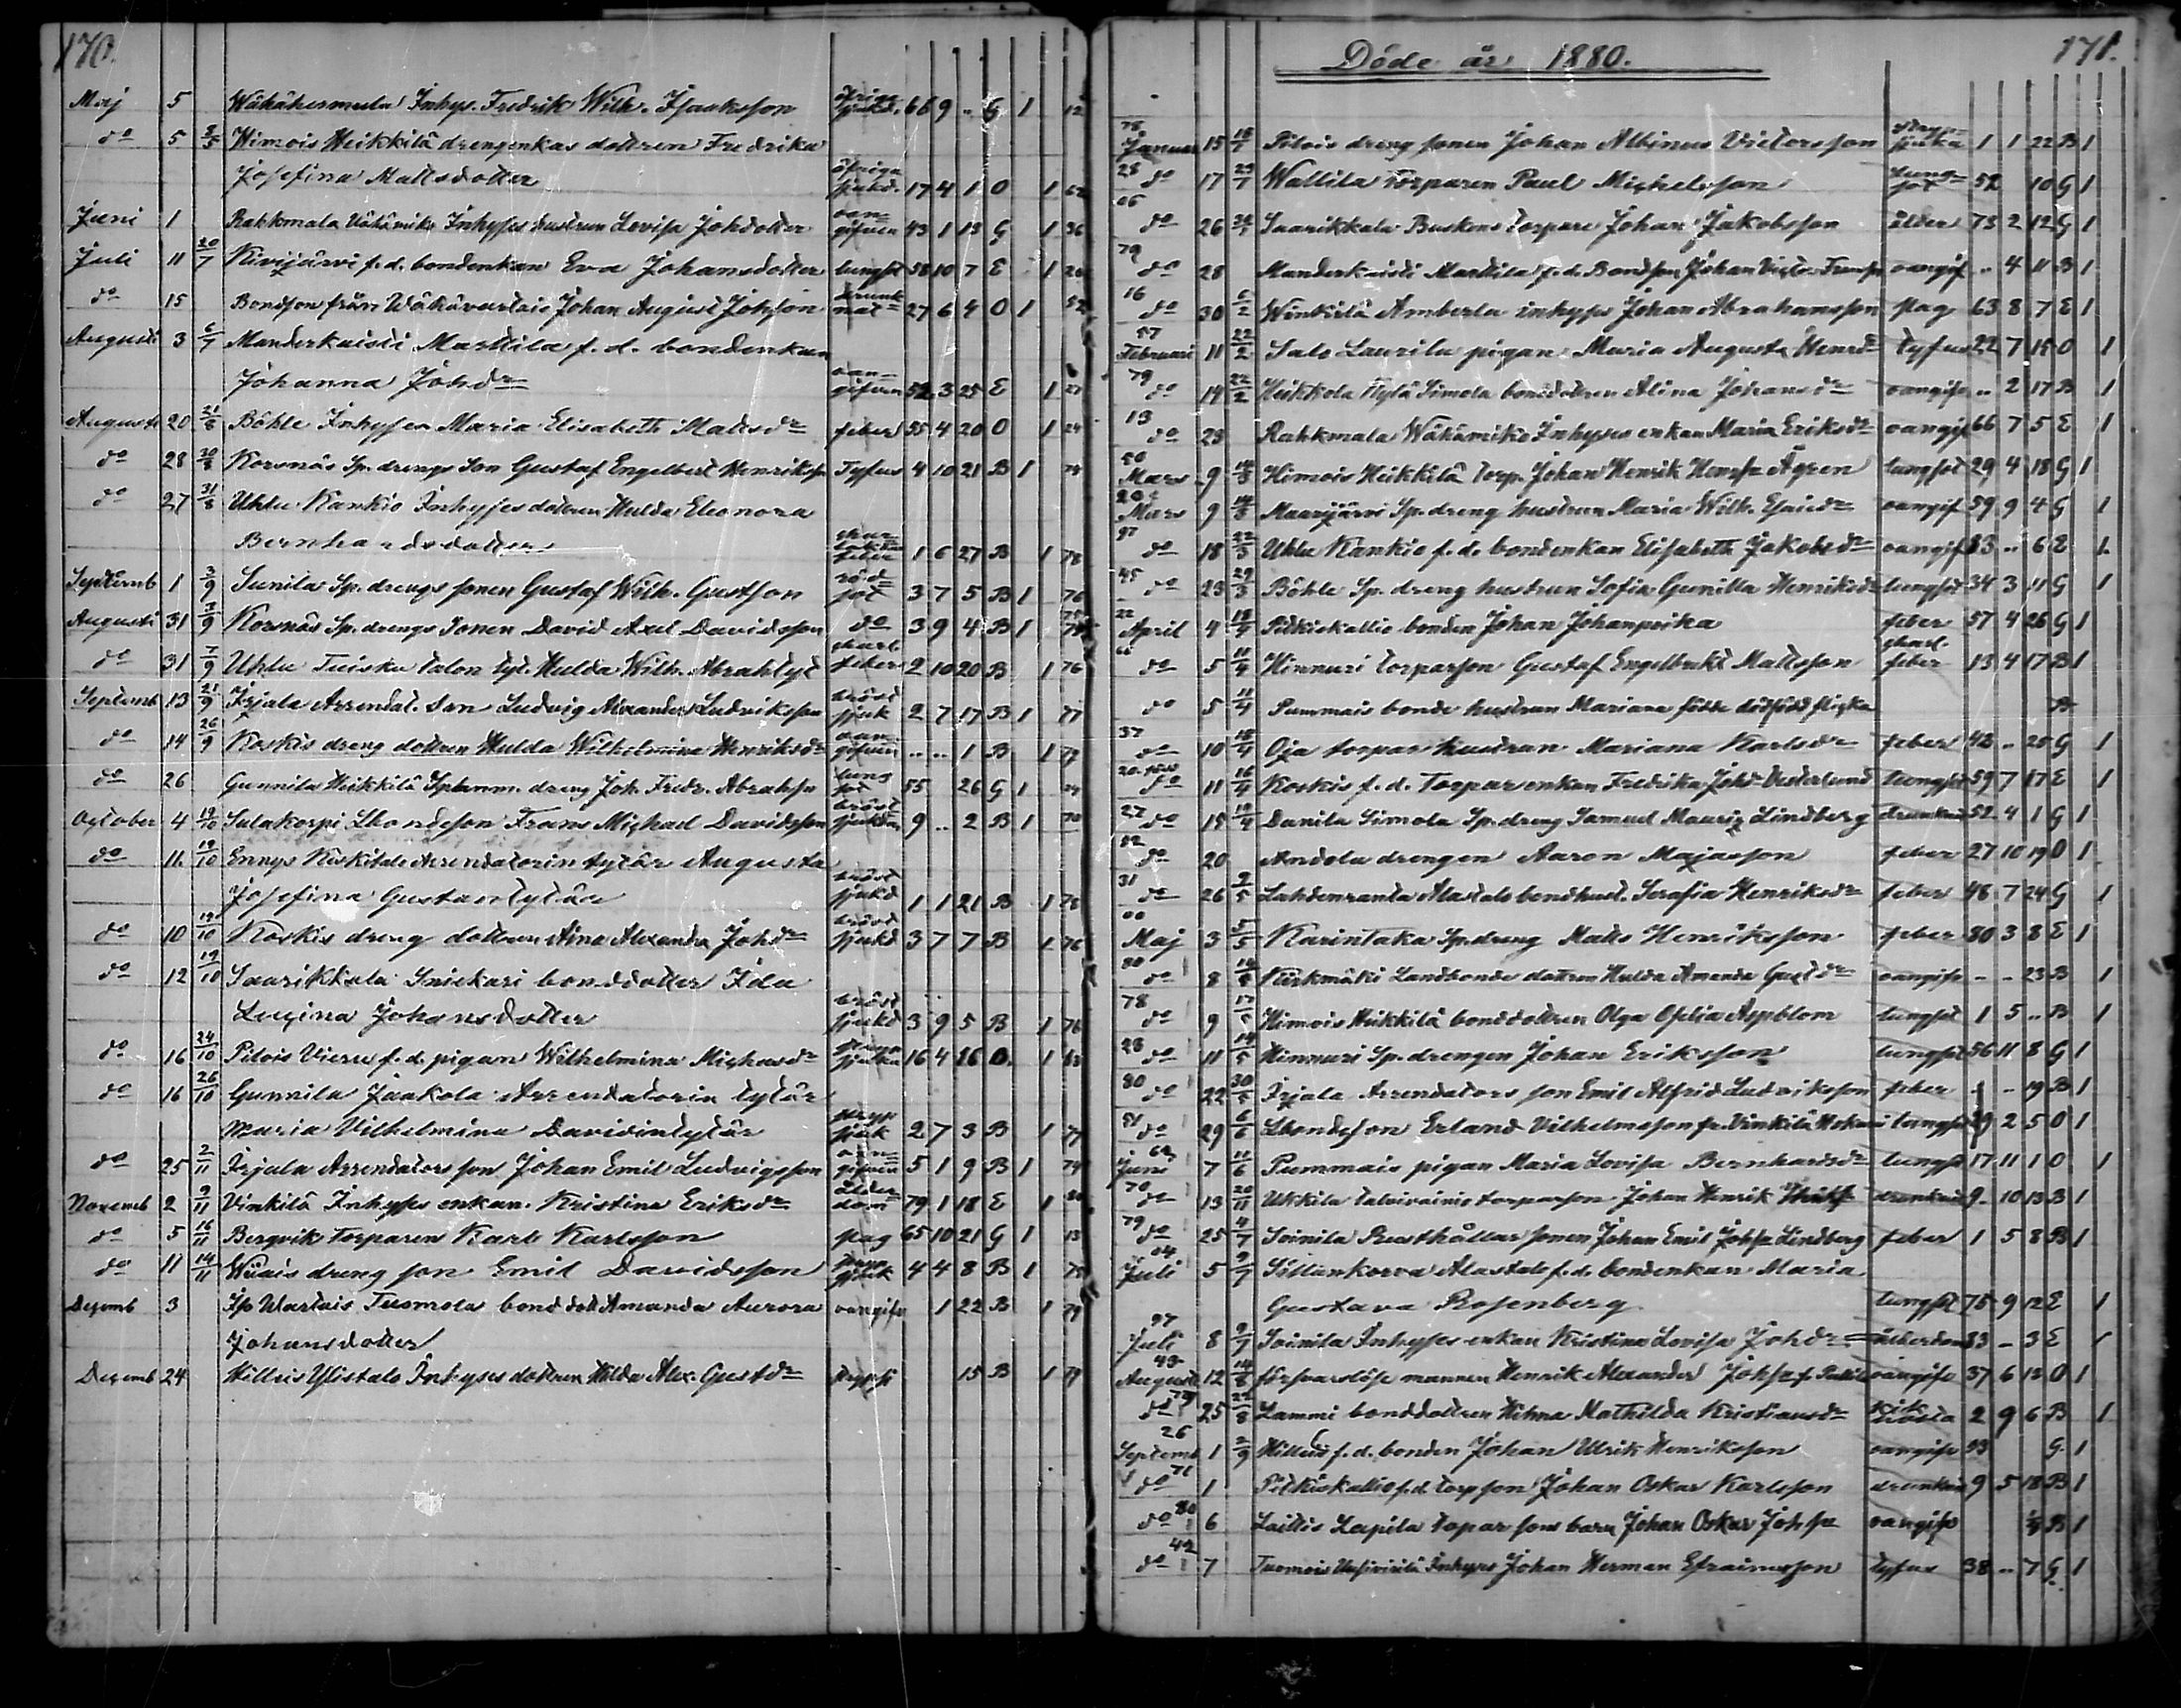 170.
Maj 5 Wähähermula Inhys. Fredrik Wilh. Isaaksson öfriga sjukd. 66 9 .. G 1 12
do 5 Himois Heikkilä drengenkas dottren Fredrika
Josefina Mattsdotter öfriga sjukd. 17 4 1 O 1
Juni 1 Rahkmala Vähämiko Inhyses hustrun Lovisa Johdotter oangifven 43 1 13 G 1 36
Juli 11 20/7 Kivijärvi f. d. bondenkan Eva Johansdotter lungst 58 10 7 E 1
do 15 Bondson från Wähävartois Johan August Johsson drunknat 27 6 4 O 1 52
Augusti 3 Manderkaisti Marttila f. d. bondenkan
Johanna Johdr oangifven 52 3 25 E 1 27
Augusti 20 21/8 Böhle Inhyses Maria Elisabeth Matsdr feber 55 4 20 O 1 24
do 28 30/8 Korsnäs Sp. drengs Son Gustaf Engelbert Henriksson Tyfus 4 10 21 B 1
do 27 31/8 Uhlu Kankio Inhyses dottren Hulda Eleonora
Bernhardsdotter 1 6 27 B 1 78
Septemb 1 3/9 Sunila Sp. drengs sonen Gustaf Wilh. Gustsson rödsot 3 7 5 B 1 76
Augusti 31 Korsnäs Sp. drengs Sonen David Axel Davidsson do 3 9 4 B 1
do 31 7/9 Uhlu Tuisku talon tyt. Hulda Wilh. Abrahtyt skarl feber 2 10 20 B 1 76
Septemb 13 21/9 Irjala Arrendat. Son Ludvig Alexander Ludviksson bröst sjuk 2 7 17 B 1 77
do 14 26/9 Koskis dreng dottren Hulda Wilhelmina Henriksdr oangifven .. .. 1 B 1 79
do 26 Gunnila Heikkilä Sp. dreng Joh. Fredr. Abrahsn lungsot 55 26 G 1
October 4 19/10 Salakorpi Sbondeson Frans Michael Davidsson bröst sjukdom 9 .. 2 B 1 70
do 11 19/10 Ennys Kuskitalo Arrendatorin tytär Augusta
Josefina Gustavtytär bröst sjukd 1 1 21 B 1
do 10 19/10 Koskis dreng dottren Aina Alexandra Johdr bröst sjukd 3 7 7 B 1 76
do 12 19/10 Saarikkala Sniekari bonddotter Ida
Lucina Johansdotter bröst sjukd 3 9 5 B 1 76
do 16 24/10 Pilois Vieru f. d. pigan Wilhelmina Michasdr 16 4 26 O. 1 63
do 16 26/10 Gunnila Jaakola Arrendatorin tytär
Maria Vilhelmina Davidintytär stryp sjuk 2 7 3 B 1 77
do 25 2/11 Irjala Arrendators son Johan Emil Ludvigsson oangifven 5 1 9 B 1 74
Novemb 2 9/11 Vinkilä Inhyses enkan Kristina Eriksdr ålderdom 79 1 18 E 1
do 5 16/11 Bergvik torparen Karl Karlsson slag 65 10 21 G 1 13
do 11 14/11 dreng son Emil Davidsson stryp sjuk 4 4 8 B 1
Decemb 3 Tuomola bond dott Amanda Aurora oangifv 1 22 B 1 79
Johansdotter
Decemb 24 Hilleis Ylistalo Inhyses dottren Hilda Alex. Gustdr 15 B 1 79
Döde år 1880. 171.
78 Januari 15 18/1 Pilois dreng sonen Johan Albinus Victorsson stryp sjuka 1 1 22 B 1
28 do 17 Wallila torparen Paul Michelsson lungsot 52 10 G 1
06 do 26 Saarikkala Buskens torpare Johan Jakobsson ålder 73 2 12 G 1
79 do 28 Manderkaisti Marttila f. d. Bondson Johan oangif .. 4 11 B 1
16 do 30 Winkilä Amberla inhyses Johan Abrahamsson slag 63 8 7 E 1
57 Februari 11 22/2 Salo Laurila pigan Maria Augusta Henrdr tyfus 22 7 15 O 1
79 do 14 22/2 Heikkola Kylä Simola bonddottren Alina Johansdr oangifv .. 2 17 B 1
13 do 23 Rahkmala Wähämiko Inhyses enkan Maria Eriksdr oangif 66 7 5 E 1
50 Mars 9 14/3 Himois Heikkilä torp. Johan Henrik Henrsn Ågren lungsot 29 4 18 G 1
20 Mars 9 14/3 Maarjärvi Sp. dreng hustrun Maria Wilh. Esaiedr oangif 59 9 4 G 1
97 do 18 22/3 Uhlu Kankio f. d. bondenkan Elisabeth Jakobsdr oangif 83 .. 6 E 1
45 do 23 29/3 Böhle Sp. dreng hustrun Sofia Gunilla Henriksdr lungsot 34 3 11 G 1
22 April 4 18/4 Pitkiskallio bonden Johan Johanpoika feber 57 4 26 G 1
66 do 5 11/4 Hinnuri torparson Gustaf Engelbrekt Mattsson skarl. feber 13 4 17 B 1
do 5 11/4 Pummais bonde hustrun Mariana födde dödfödd flicka B
37 do 10 18/4 Oja torpar hustrun Mariana Karlsdr feber 42 .. 20 G 1
20 do 11 16/4 Koskis f. d. Torparenkan Fredrika Johdr Vesterlund lungsot 59 7 17 E 1
27 do 15 18/4 Danila Simola Sp. dreng Samuel Mauriz Lindberg drunknad 52 4 1 G 1
52 do 20 Andola drengen Aaron Majasson feber 27 10 19 O 1
31 do 26 2/5 Lahdenranta Alastalo bondhust. Serafia Henriksdr feber 48 7 24 G 1
00 Maj 3 5/5 Karintaka Sp. dreng Matts Henriksson feber 80 3 8 E 1
80 do 8 Kirkmäki Landbonde dottren Hulda Amanda Gustdr oangifv - - 23 B 1
78 do 9 17/5 Himois Heikkilä bonddottren Olga Ofelia Aspblom lungsot 1 5 .. B 1
23 do 11 14/5 Hinnuri Sp. drengen Johan Eriksson lungsot 56 11 8 G 1
80 do 22 30/5 Irjala Arrendators son Emil Alfrid Ludviksson feber - - 19 B 1
51 do 29 6/6 Sbondeson Erland Vilhelmsson fr. Vinkilä lungsot 29 2 5 O 1
62 Juni 7 11/6 Pummais pigan Maria Lovisa Bernhardsdr lungst 17 11 1 O 1
70 do 13 Ukkila Talvivainio torparson Johan Henrik drunknad 9 10 13 B 1
79 do 25 4/7 Soinila Rusthållar sonen Johan Emil Johsn Lindberg feber 1 5 8 B 1
04 Juli 5 9/7 Sillänkorva Alastalo f. d. bondenkan Maria
Gustava Rosenberg lungsot 75 9 12 E 1
97 Juli 8 9/7 Soinila Inhyses enkan Kristina Lovisa Johdr ålderdom 83 - 3 E 1
43 Augusti 12 14/8 försvarslöse mannen Henrik Alexander Johsn oangifv 37 6 12 O 1
79 do 25 29/8 Lammi bonddottren Wilma Mathilda Kristiansdr kikhosta 2 9 6 B 1
26 Septemb 1 2/9 Hilleis f. d. bonden Johan Ulrik Henriksson oangifv 53 G 1
71 do 1 Pitkiskallio f. d. torpson Johan Oskar Karlsson drunknad 9 5 18 B 1
80 do 6 Laitis Lapila torpar sons barn Johan Oskar Johsn oangifv B 1
42 do 7 Tuomois Uusivirilä Inhyses Johan Herman Efraimsson tyfus 38 .. 7 G 1